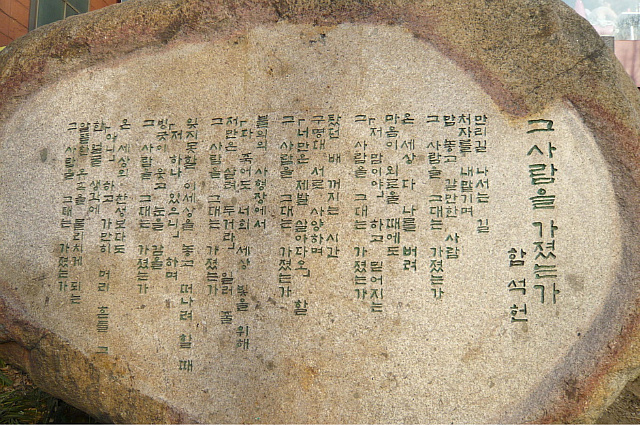 그 사람을 가졌는가
함석헌
만리길 나서는 길
처자를 내맡기며
맘 놓고 갈만한 사람
그 사람을 그대는 가졌는가
온 세상 다 나를 버려
마음이 외로울 때에도
「저 맘이야」 하고 믿어지는
그 사람을 그대는 가졌는가
탔던 배 꺼지는 시간
구명대 서로 사양하며
「너만은 제발 살아다오」 할
그 사람을 그대는 가졌는가
불의의 사형장에서
「다 죽여도 너희 세상 빛을 위해
저만은 살려 두거라」 일러 줄
그 사람을 그대는 가졌는가
잊지못할 이 세상을 놓고 떠나려 할 때
「저 하나 있으니」 하며
빙긋이 웃고 눈을 감을
그 사람을 그대는 가졌는가
온 세상의 찬성보다도
「아니」 하고 가만히 머리 흔들 그
한 얼굴 생각에
알뜰한 유혹을 물리치게 되는
그 사람을 그대는 가졌는가